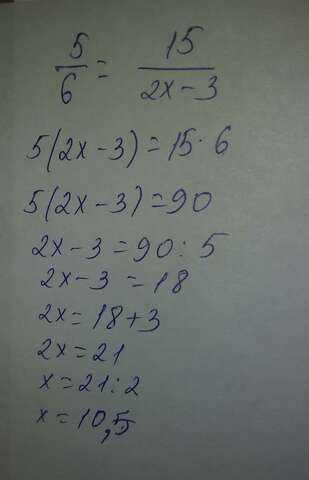 5/6 = 15/(2x-3)
5(2x-3)=15·6
5(2x-3)=90
2x-3=90:5
2x-3=18
2x=18+3
2x=21
x=21:2
x=10,5